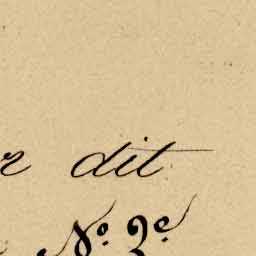 dit
No. 2e.